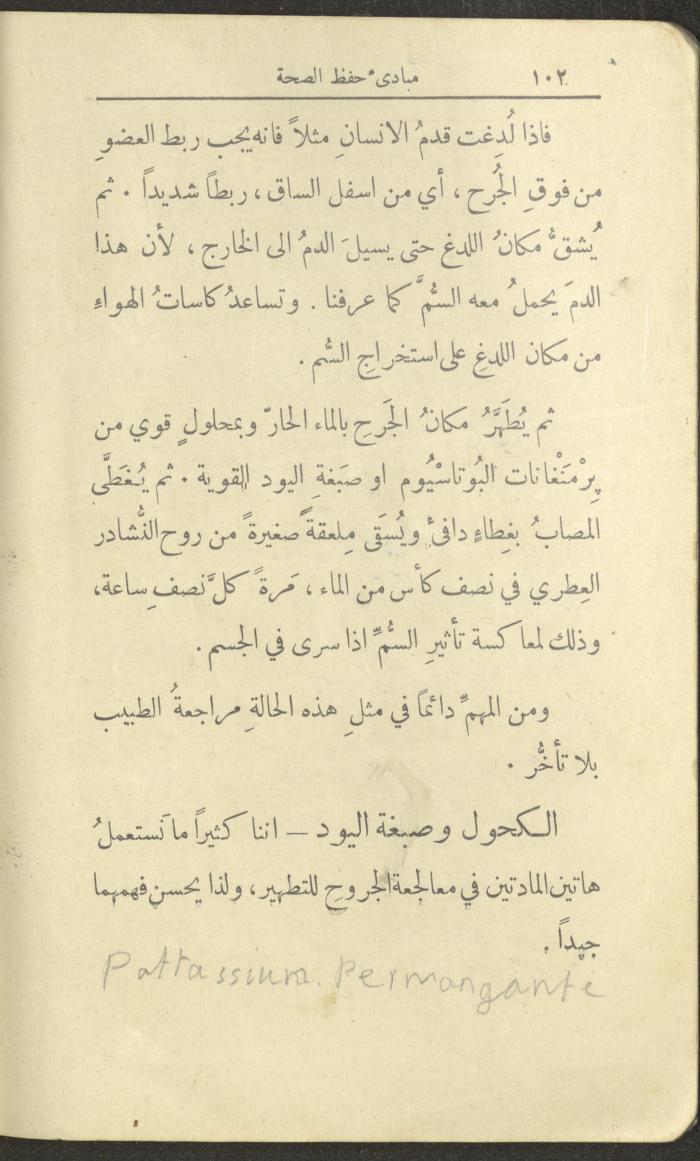 ١٠٢ مبادىء حفظ الصحة
فاذا لُدِغت قدمُ الانسانِ مثلاً فانه يجب ربط العضوِ
من فوقِ الجُرح ، أي من اسفل الساق ، ربطاً شديداً . ثم
يُشقُّ مكانُ اللدغ حتى يسيلَ الدمُ الى الخارج ، لأن هذا
الدمَ يحملُ معه السُّمَّ كما عرفنا . وتساعدُ كاساتُ الهواءِ
من مكان اللدغِ على استخراجِ السُّم .
ثم يُطَهَّرُ مكانُ الجَرحِ بالماء الحارّ وبمحلولٍ قوي من
بِرْمَنْغَانات البُوتاسْيُوم او صَبَغةِ اليود القوية . ثم يُغَطَّى
المصابُ بغِطاءٍ دافئٍ ويُسَقَى مِلعقةً صغيرةً من روح النُّشادر
العِطري في نصف كأس من الماء ، مَرةً كلَّ نصفِ ساعة ،
وذلك لمعاكسة تأثيرِ السُّمِّ اذا سرى في الجسم .
ومن المهمِّ دائماً في مثلِ هذه الحالةِ مراجعةُ الطبيب
بلا تأخُّر .
الكحول وصبغة اليود — اننا كثيراً ما نَستعملُ
هاتين المادتين في معالجعة الجروحِ للتطهير ، ولذا يحسن فهمهما
جيداً .
Pottassium. Permangante